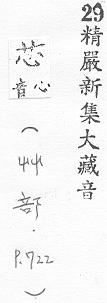 29精嚴新集大藏音
芯
音心
（艸部．P.722）